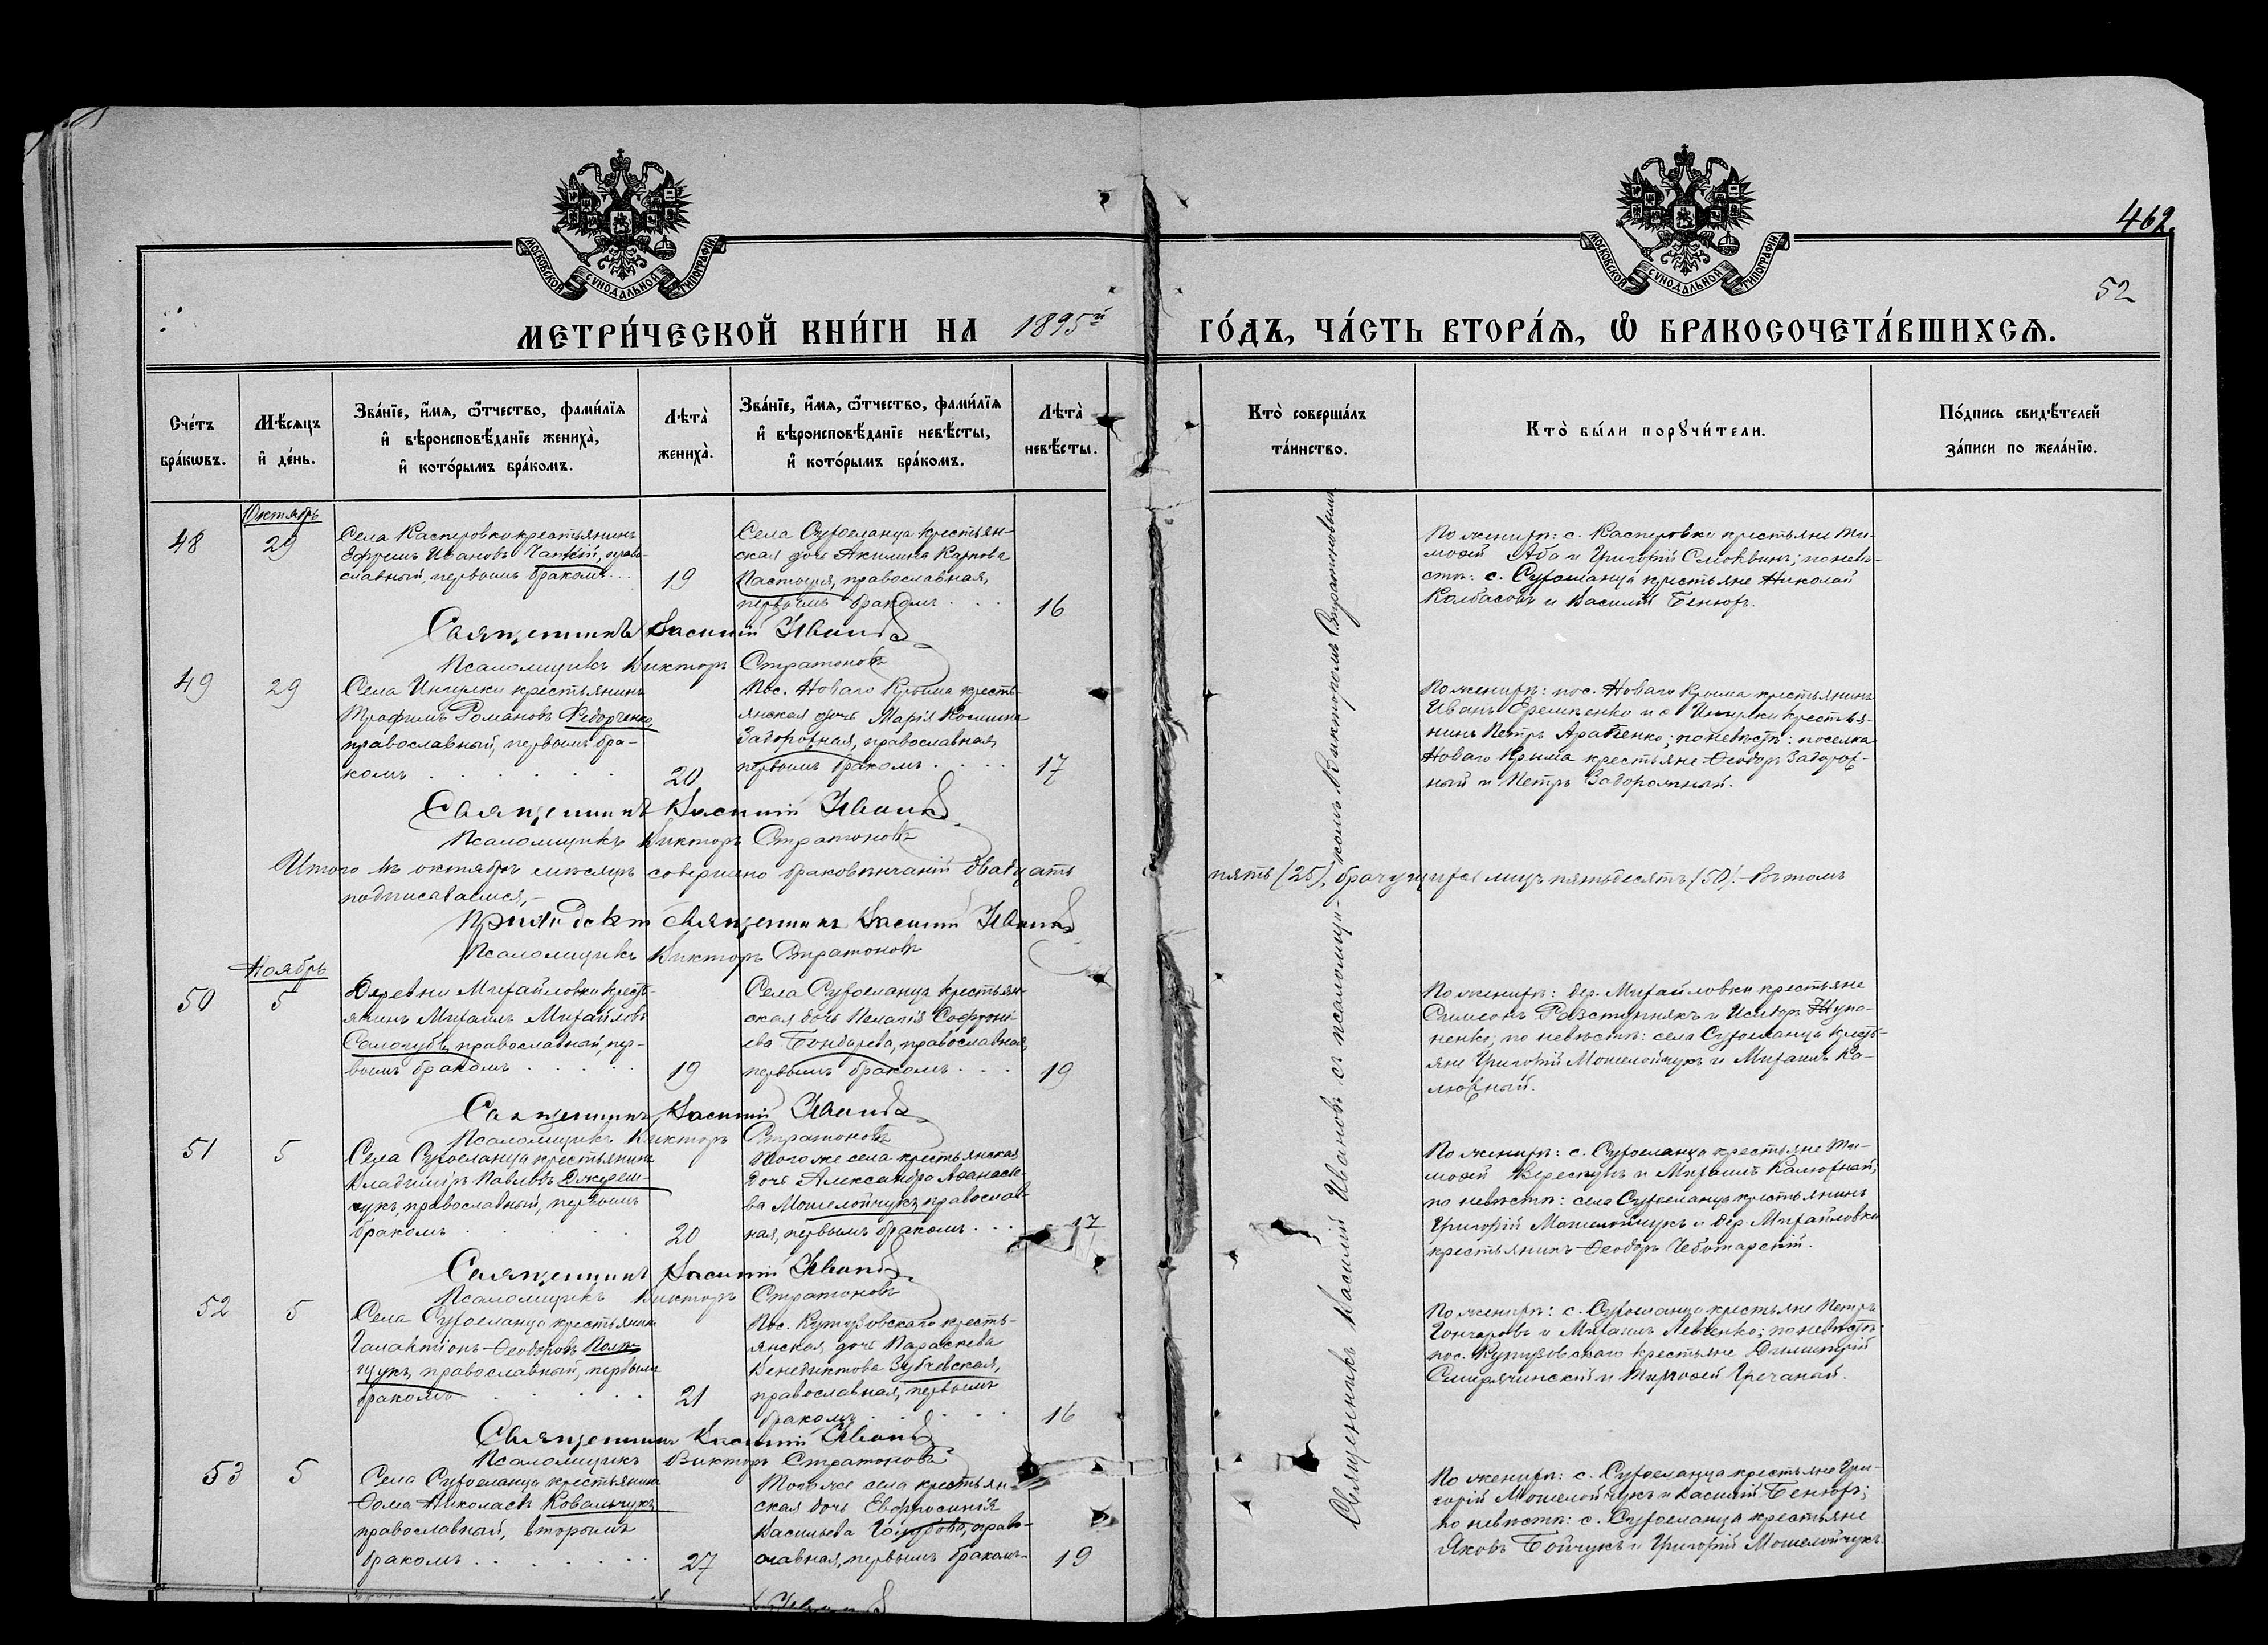 МОСКОВСКОЙ СУНОДАЛЬНОЙ ТИПОГРАФІИ
МОСКОВСКОЙ СУНОДАЛЬНОЙ ТИПОГРАФІИ
462
52
МЕТРИ́ЧЕСКОЙ КНИ́ГИ НА 1895й ГО́ДЪ, ЧА́СТЬ ВТОРА́Я, Ѽ БРАКОСОЧЕТА́ВШИХСЯ.
Сче́тъ бра́кωвъ.
Мѣ́сяцъ и҆ де́нь.
Зва́нїе, и҆́мя, ѻ҆́тчество, фами́лїя
и҆ вѣроисповѣ́данїе жениха̀,
и҆ кото́рымъ бра́комъ.
Лѣта̀ жениха̀.
Зва́нїе, и҆́мя, ѻ҆́тчество, фами́лїя
и҆ вѣроисповѣ́данїе невѣ́сты,
и҆ кото́рымъ бра́комъ.
Лѣта̀ невѣ́сты.
Кто̀ соверша́лъ
та́инство.
Кто̀ бы́ли порꙋчи́тели.
По́дпись свидѣ́телей
за́писи по жела́нїю.
Октябрь
48
29
Села Касперовки крестьянинъ
Ефремъ Ивановъ право-
славный, первымъ бракомъ
19
Села Сухоеланца крестьян-
ская дочь Акилина Карпова
православная,
первымъ бракомъ
16
По женихѣ: с. Касперовки крестьяне Ти-
моѳей и Григорій по невѣ-
стѣ: с. Сухоеланца крестьяне Николай
Колбасовъ и Василій Бенюхъ.
Священникъ Василій Ивановъ
Псаломщикъ Викторъ Стратоновъ
49
29
Села Ингулки крестьянинъ
Трофимъ Романовъ Федорченко,
православный, первымъ бра-
комъ
20
Пос. Новаго Крыма кресть-
янская дочь Марія Космина
Задорожная, православная
первымъ бракомъ
17
По женихѣ: пос. Новаго Крыма крестьянинъ
Иванъ Еременко и с. Ингулки крестья-
нинъ Петръ по невѣстѣ: поселка
Новаго Крыма крестьяне Ѳеодоръ Задорож-
ный и Петръ Задорожный.
Священникъ Василій Ивановъ
Псаломщикъ Викторъ Стратоновъ
Итого въ октябрѣ мѣсяцѣ совершено браковѣнчаній двадцать пять (25), брачущихся лицъ пятьдесятъ (50). Въ томъ
подписываемся,
Приходскій священникъ Василій Ивановъ
Псаломщикъ Викторъ Стратоновъ
Ноябрь
50
5
Деревни Михайловки кресть-
янинъ Михаилъ Михайловъ
Сологубъ, православный, пер-
вымъ бракомъ
19
Села Сухоеланца крестьян-
ская дочь Пелагія Софрони-
ева Бондарева, православная,
первымъ бракомъ
19
По женихѣ: дер. Михайловки крестьяне
Симеонъ и Исидоръ
по невѣстѣ: села Сухоеланца кресть-
яне Григорій Мошелойчукъ и Михаилъ Ка-
люжный.
Священникъ Василій Ивановъ
Псаломщикъ Викторъ Стратоновъ
51
5
Села Сухоеланца крестьянинъ
Владиміръ Павловъ Джереш-
чукъ, православный, первымъ
бракомъ
20
Того же села крестьянская
дочь Александра Аѳанасіе-
ва Мошелойчукъ, православ-
ная, первымъ бракомъ
17
По женихѣ: с. Сухоеланца крестьяне Ти-
моѳей Верескунъ и Михаилъ Калюжный;
по невѣстѣ: села Сухоеланца крестьянинъ
Григорій Мошелойчукъ и дер. Михайловки
крестьянинъ Ѳеодоръ Чеботарскій.
Священникъ Василій Ивановъ
Псаломщикъ Викторъ Стратоновъ
52
5
Села Сухоеланца крестьянинъ
Галактіонъ Ѳеодоровъ
православный, первымъ
бракомъ
21
Пос. Кутузовскаго кресть-
янская дочь Параскева
Венедиктова Зубчевская,
православная, первымъ
бракомъ
16
По женихѣ: с. Сухоеланца крестьяне Петръ
Гончаровъ и Михаилъ Левченко; по невѣстѣ:
пос. Кутузовскаго крестьяне Димитрій
и Тимоѳей Гречаный.
Священникъ Василій Ивановъ
Псаломщикъ Викторъ Стратоновъ
53
5
Села Сухоеланца крестьянинъ
Ѳома Николаевъ Ковальчукъ,
православный, вторымъ
бракомъ
27
Того же села крестьян-
ская дочь Евфросинія
Васильева право-
славная, первымъ бракомъ
19
По женихѣ: с. Сухоеланца крестьяне Гри-
горій Мошелойчукъ и Василій Бенюхъ;
по невѣстѣ: с. Сухоеланца крестьяне
Яковъ Бойчукъ и Григорій Мошелойчукъ
Священникъ Василій Ивановъ съ псаломщикомъ Викторомъ Стратоновымъ